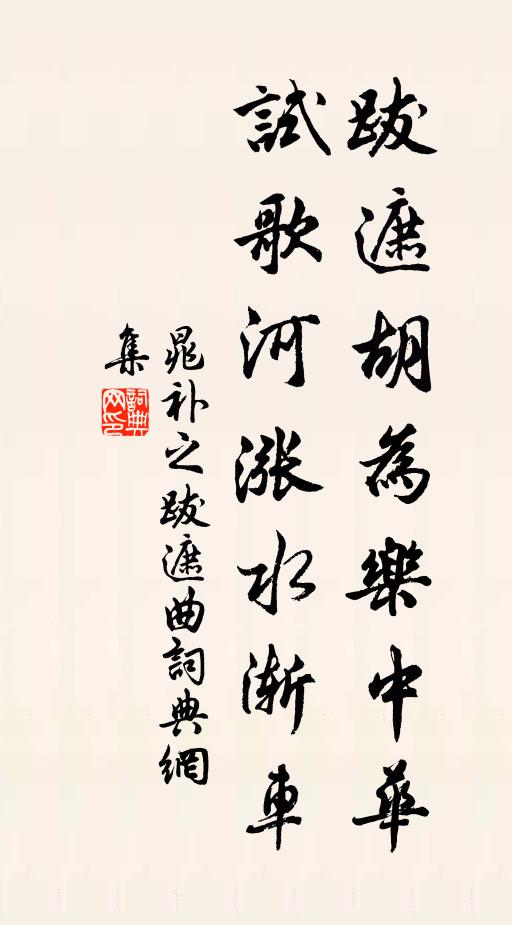 跋遮胡為樂中華
試歌河漲水漸車
晁补之跋遮曲詞典網
集
詞典网印